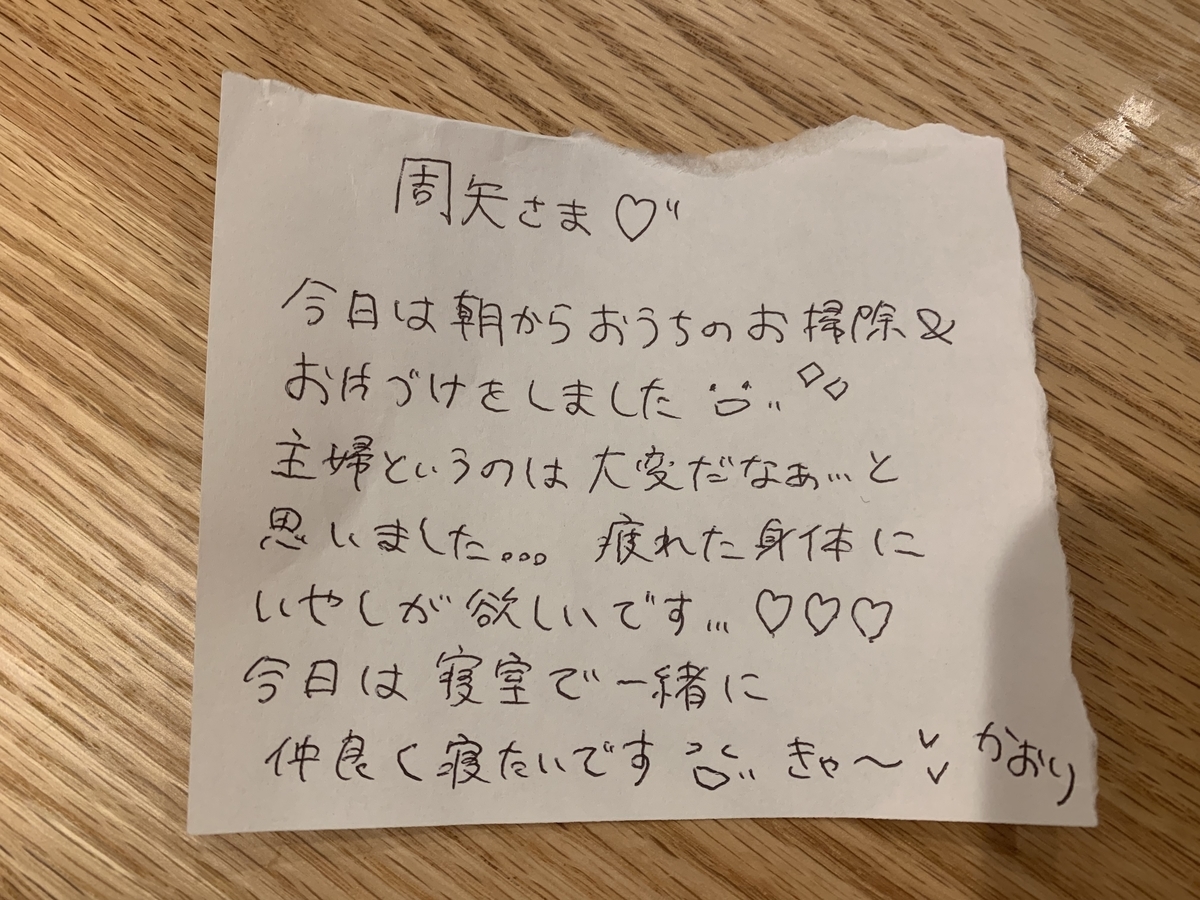 周矢さま♡"
今日は朝からおうちのお掃除&
おけづけをしました
主婦というのは大変だなぁ…と
思いました... 疲れた身体に
いやしが欲しいです…♡♡♡
今日は寝室で一緒に
仲良く寝たいです きゃ〜 かおり